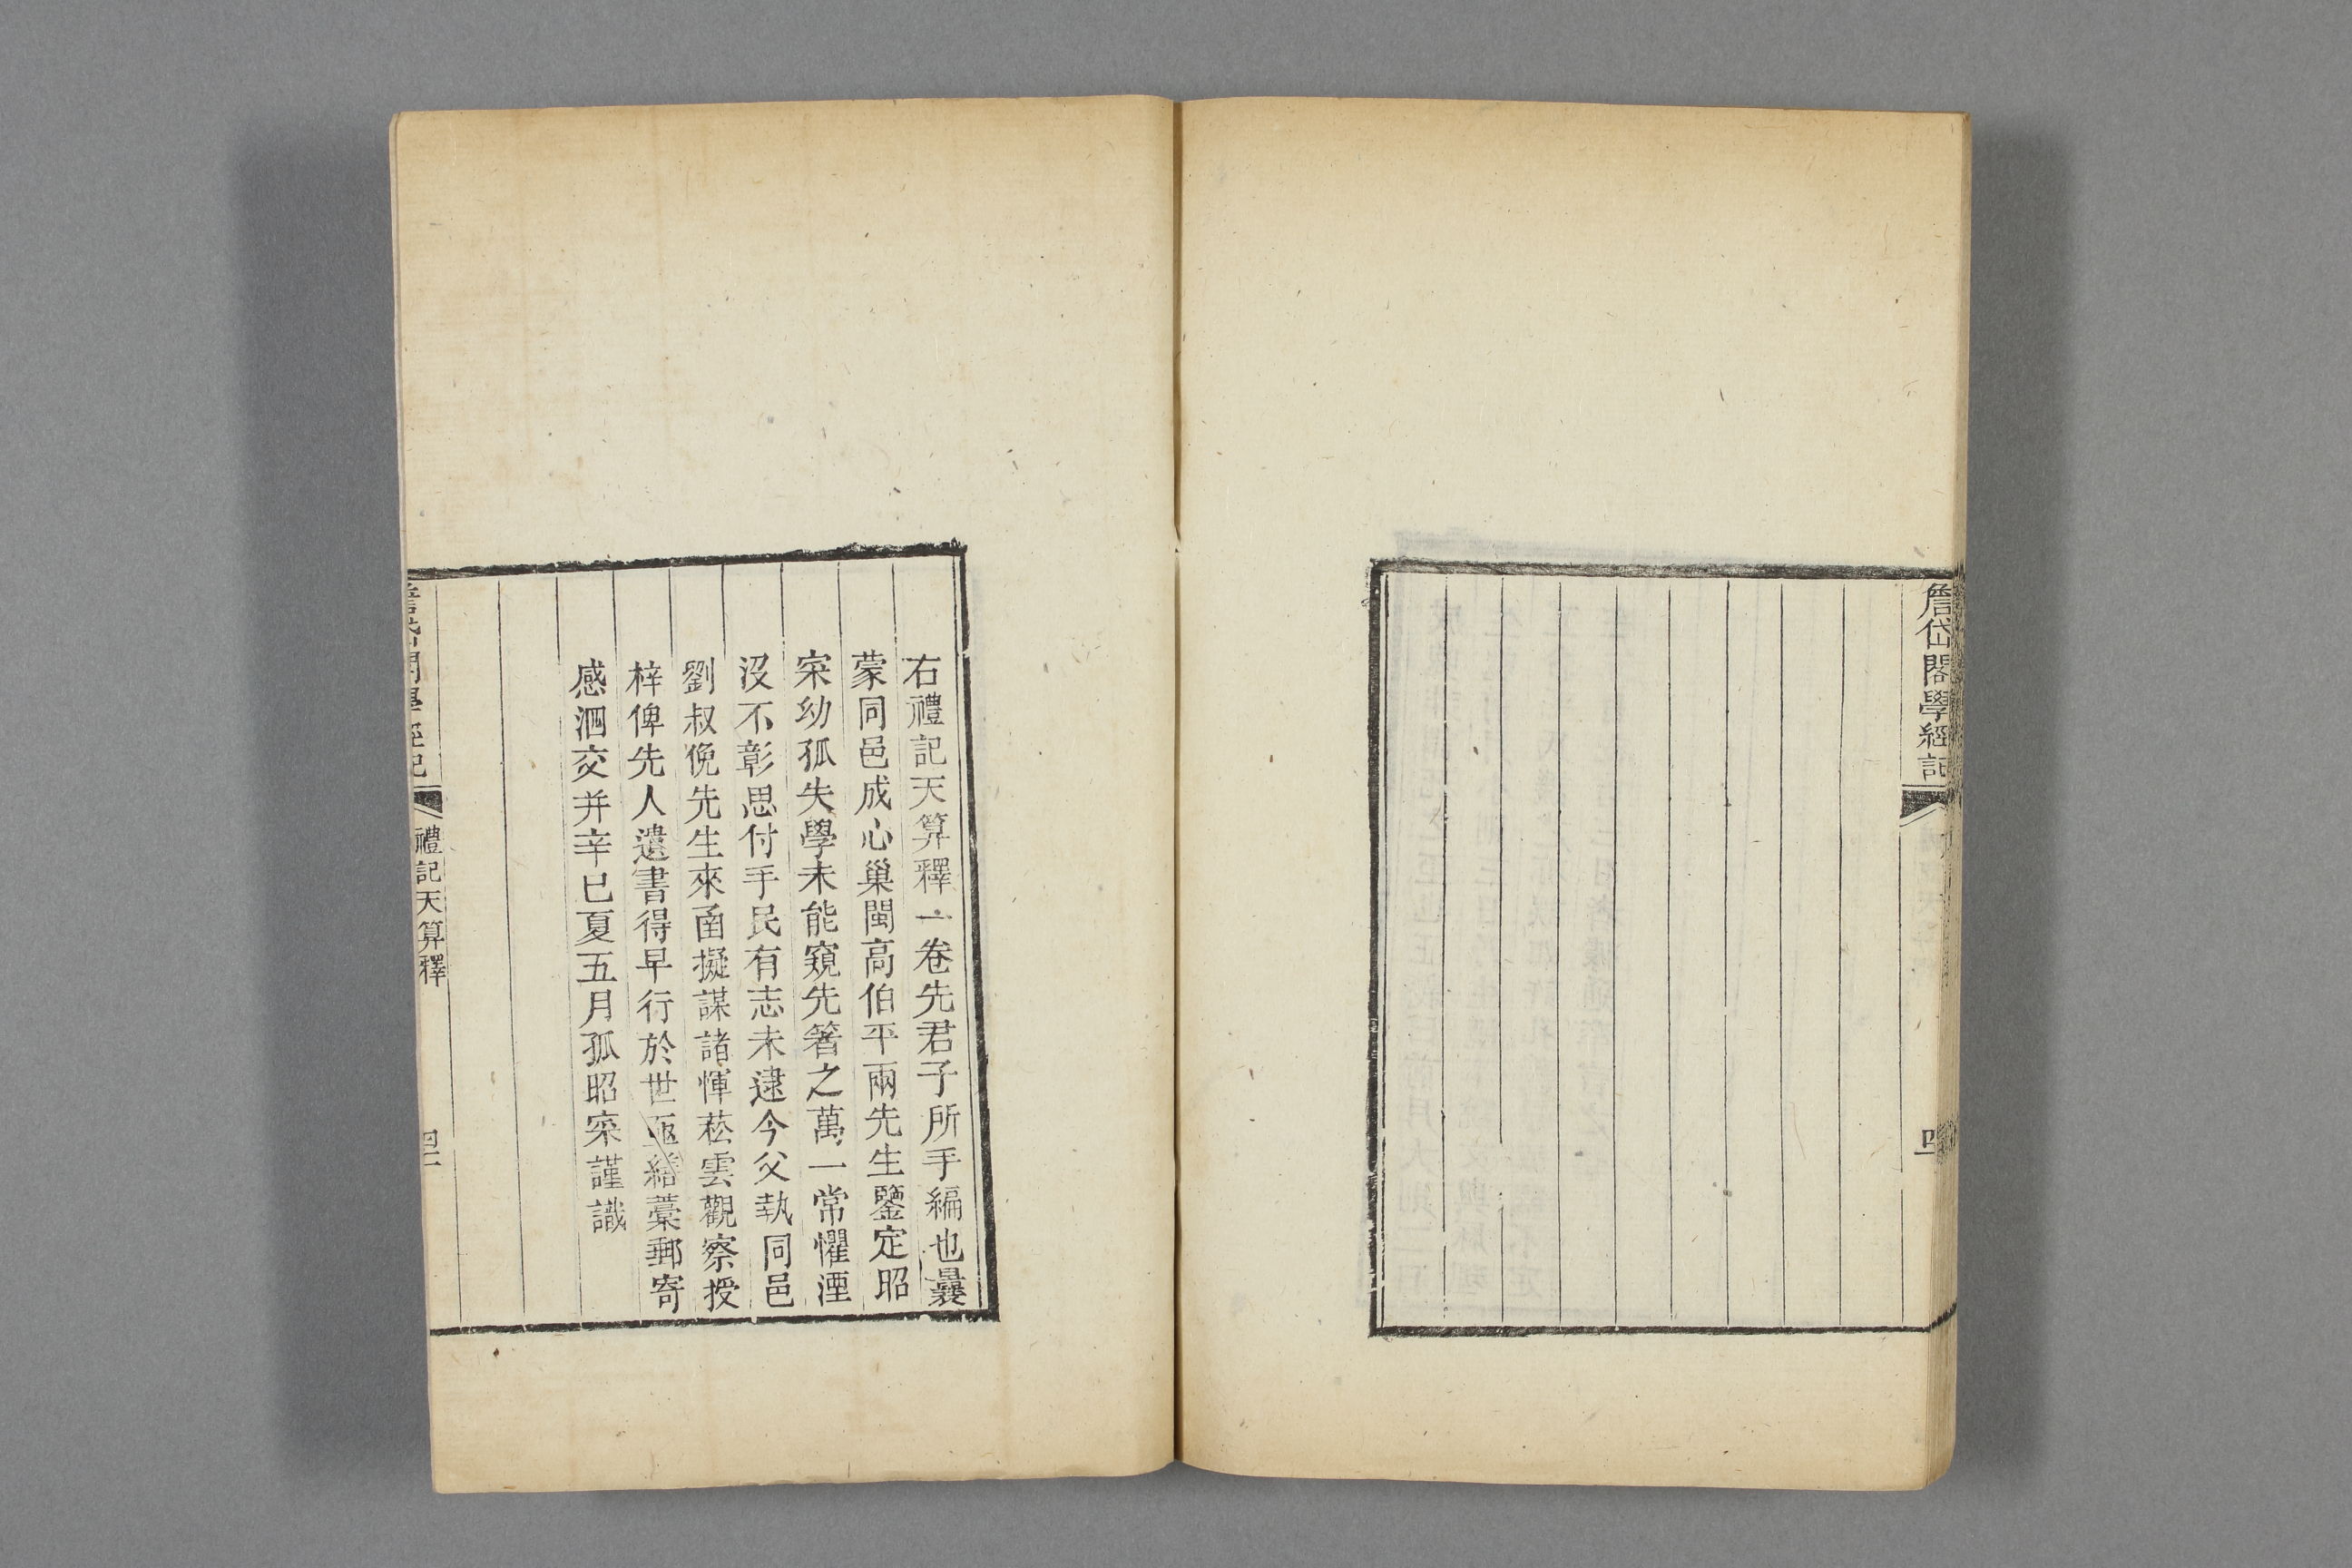 詹岱閣學經記
四一
右禮記天算釋一卷先君子所手編也曩
蒙同邑成心巢閩高伯平兩先生鑒定昭
寀幼孤失學未能窺先箸之萬一常懼湮
沒不彰思付手民有志未逮今父執同邑
劉叔俛先生來函擬謀諸惲菘雲觀察授
梓俾先人遺書得早行於世亟繕藁郵寄
感泗交并辛巳夏五月孤昭寀謹識
禮記天算釋
四二